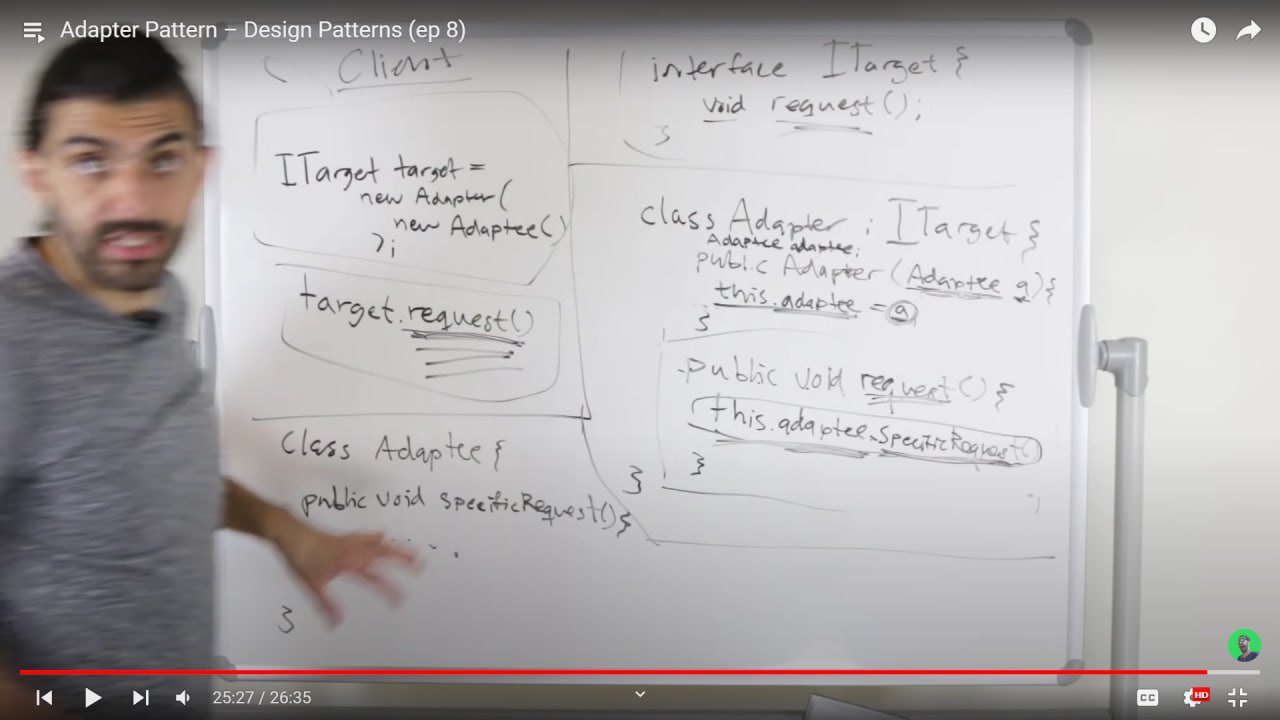 Adapter Pattern – Design Patterns (ep 8)
Client
ITarget target =
new Adapter(
new Adaptee()
);
target.request()
class Adaptee {
public void specificRequest(){
....
}
interface ITarget {
void request();
}
class Adapter : ITarget {
Adaptee adaptee;
public Adapter (Adaptee a){
this.adaptee = a
}
public void request() {
this.adaptee.SpecificRequest()
}
}
25:27 / 26:35
CC
HD